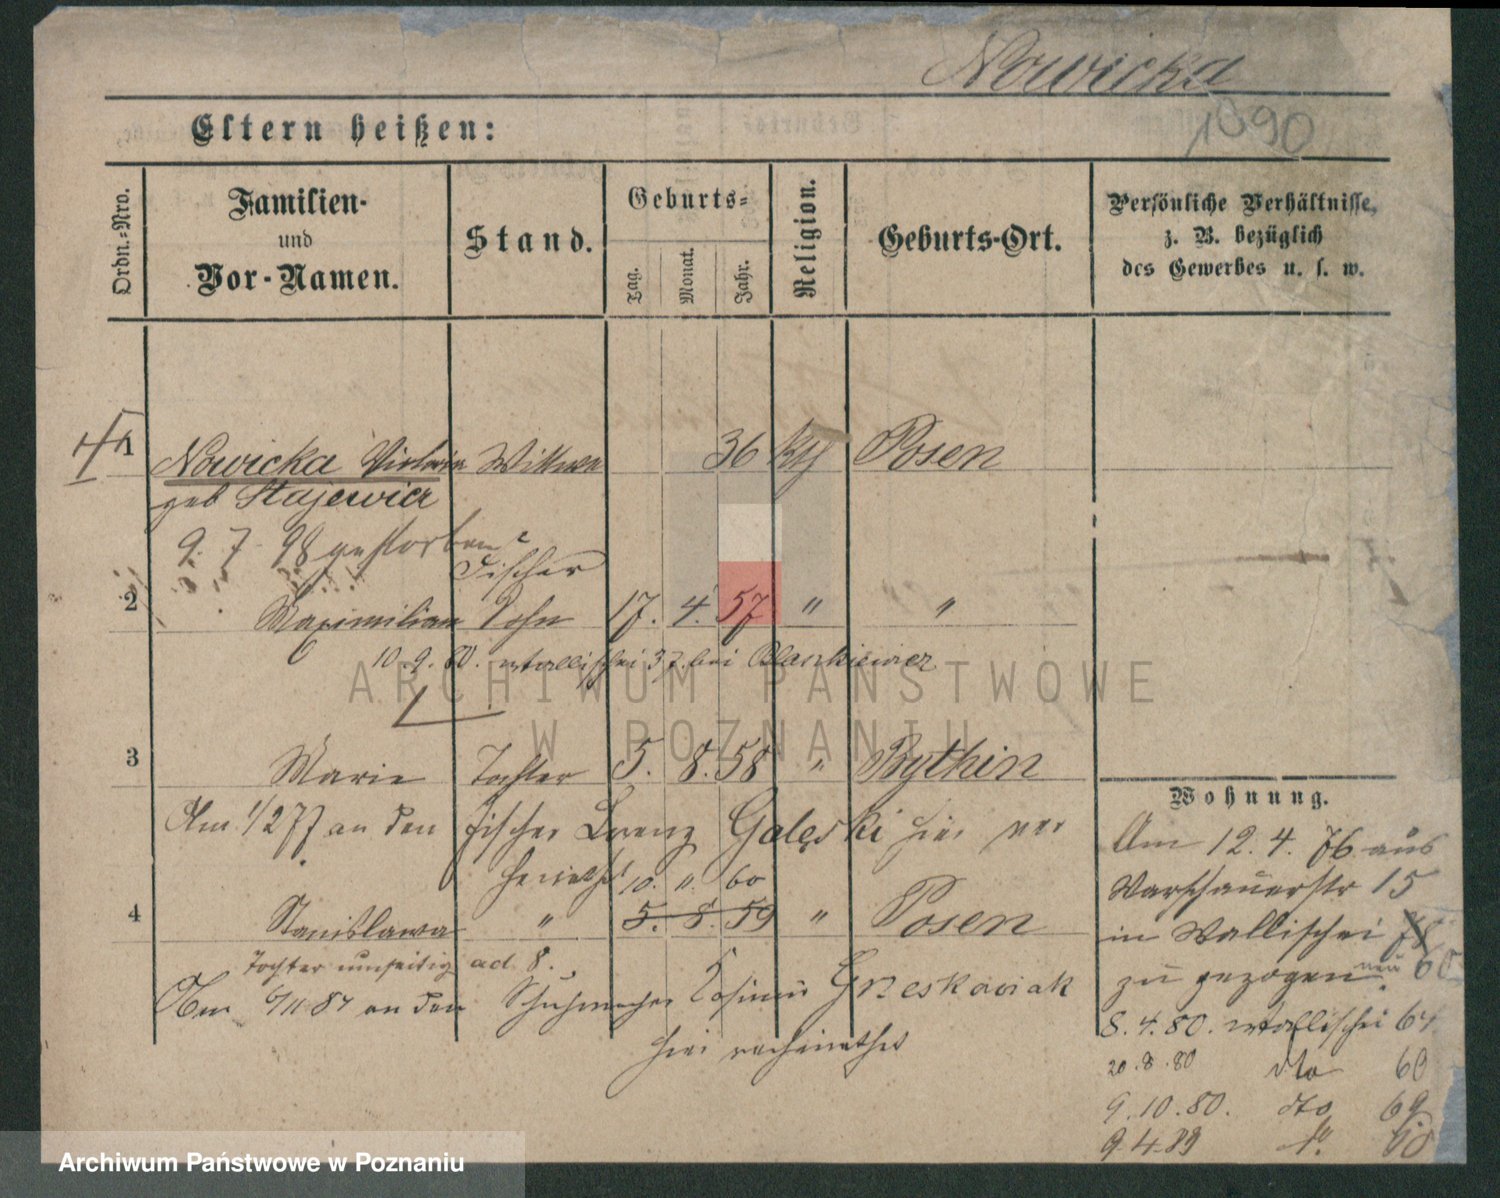 Nowicka
1090
Eltern heißen:
Ordn.-Nro.
Familien-
und
Vor-Namen.
Stand.
Geburts-
Tag.
Monat.
Jahr.
Religion.
Geburts-Ort.
Persönliche Verhältnisse,
z. B. bezüglich
des Gewerbes u. s. w.
1 Nowicka Victoria Wittwe 36 Posen
geb Stajewicz
9. 7. 98 gestorben
Fischer
2 Maximilian Sohn 17. 4. 57 " "
10. 9. 80. Wallischei 37. bei Blaskiewicz
ARCHIWUM PAŃSTWOWE
W POZNANIU
3 Marie Tochter 5. 8. 58 " Bythin
Am 1/2 77 an den Fischer Lorenz Galęski hier ver
heirathet
10. " 60
4 Stanislawa " 5. 8. 59 " Posen
Tochter umseitig ad 8.
Am 6/11 87 an den Schuhmacher Casimir Grzeskowiak
hier verheirathet
Wohnung.
Am 12. 4. 76 aus
Warschauerstr 15
in Wallischei
zu gezogen. neu 60
8. 4. 80. Wallischei 64
20. 8. 80 dto 60
9. 10. 80. dto 69
9. 4. 89
Archiwum Państwowe w Poznaniu